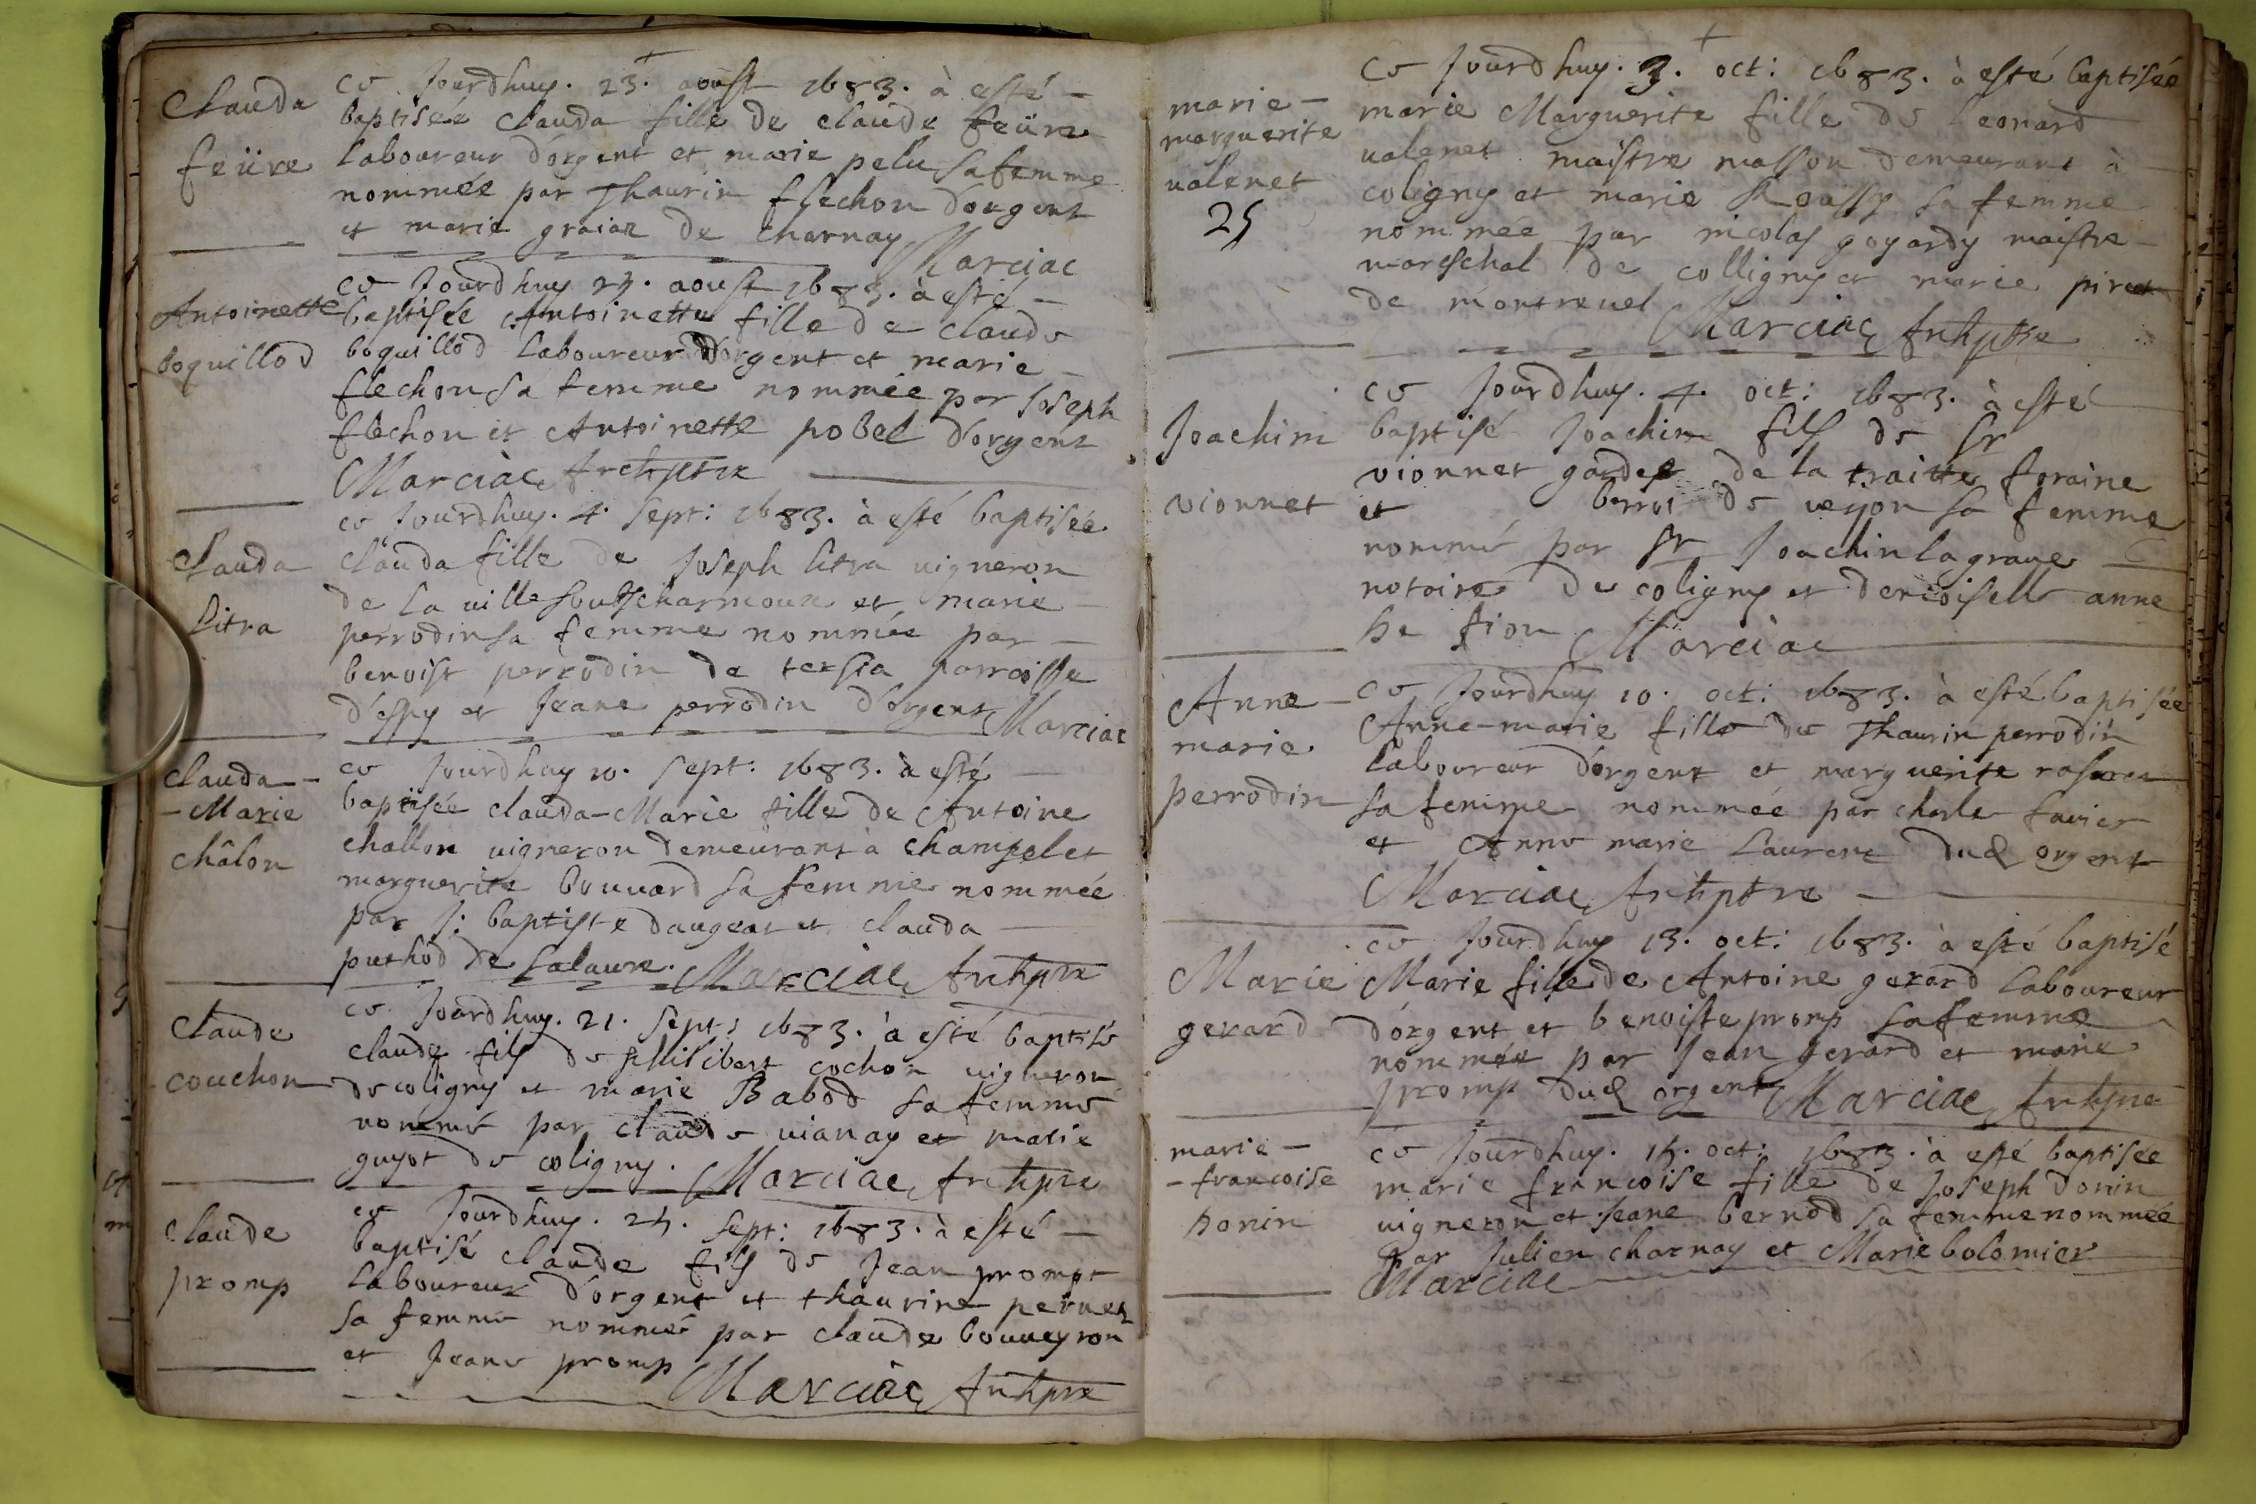 Clauda
feüre
ce Jourdhuy. 23. aoust 1683. à esté
baptiséé Clauda fille de claude feüre
laboureur dorgent et marie pelu sa femme
nomméé par Thaurin flechon dorgent
et marie graiaz de charnay Marciac
Antoinette
boquillod
ce Jourdhuy 27. aoust 1683. à esté
baptisée Antoinette fille de claude
boquillod laboureur dorgent et marie
flechon sa femme nommée par Joseph
flechon et Antoinette pobel dorgent
Marciac Archiptre
Clauda
Litra
ce Jourdhuy. 4. sept: 1683. à esté baptiséé
Clauda fille de Joseph litra uigneron
de la uille soubscharmoux et marie
perrodin sa femme nommée par
benoist perrodin de tersia parroisse
d'espy et Jeane perrodin dorgent Marciac
Clauda
- Marie
châlon
ce Jourdhuy 10. sept: 1683. à esté
baptisée clauda-Marie fille de Antoine
challon uigneron demeurant à champel et
marguerite bouuard sa femme nommée
par J: baptiste daugeat et clauda
puthod de Lalaure. Marciac Archiptre
Claude
couchon
ce Jourdhuy. 21. sept: 1683. à esté baptisé
claude fils de philibert cochon uigneron
de coligny et marie Babod sa femme
nommé par claude uianay et marie
guyot de coligny. Marciac Archiptre
Claude
promp
ce Jourdhuy. 25. sept: 1683. à esté
baptisé claude fils de Jean prompt
laboureur dorgent et thaurine
sa femme nommé par claude bouueyron
et Jeane promp Marciac Archiptre
marie
marguerite
ualenet
25
ce Jourdhuy. 3. oct: 1683. à esté baptisée
marie Marguerite fille de Leonard
ualenet maistre masson demeurant à
coligny et marie Roussy sa femme
nommée par nicolas goyardy maistre
mareschal de colligny et marie
de montreuel Marciac Archiptre
Joachim
vionnet
ce Jourdhuy. 4. oct: 1683. à esté
baptisé Joachim fils de Sr
vionnet gardes de la traitte foraine
et de ueyon sa femme
nommé par Sr Joachin lagraue
notaire de coligny et demoiselle anne
Marciac
Anne
marie
perrodin
ce Jourdhuy 10. oct: 1683. à esté baptisée
Anne-marie fille de Thaurin perrodin
laboureur dorgent et marguerite
sa femme nomméé par charle fauier
et Anne marie Laurent dud orgent
Marciac Archiptre
Marie
gerard
ce Jourdhuy 13. oct: 1683. à esté baptisé
Marie fille de Antoine gerard laboureur
dorgent et benoiste promp sa femme
nommée par Jean gerard et marie
promp dud orgent Marciac Archiptre
marie
- francoise
Donin
ce Jourdhuy. 15. oct: 1683. à esté baptisée
marie francoise fille de Joseph donin
uigneron et Jeane bernod sa femme nommée
par Julien charnay et Marie bolomier
Marciac